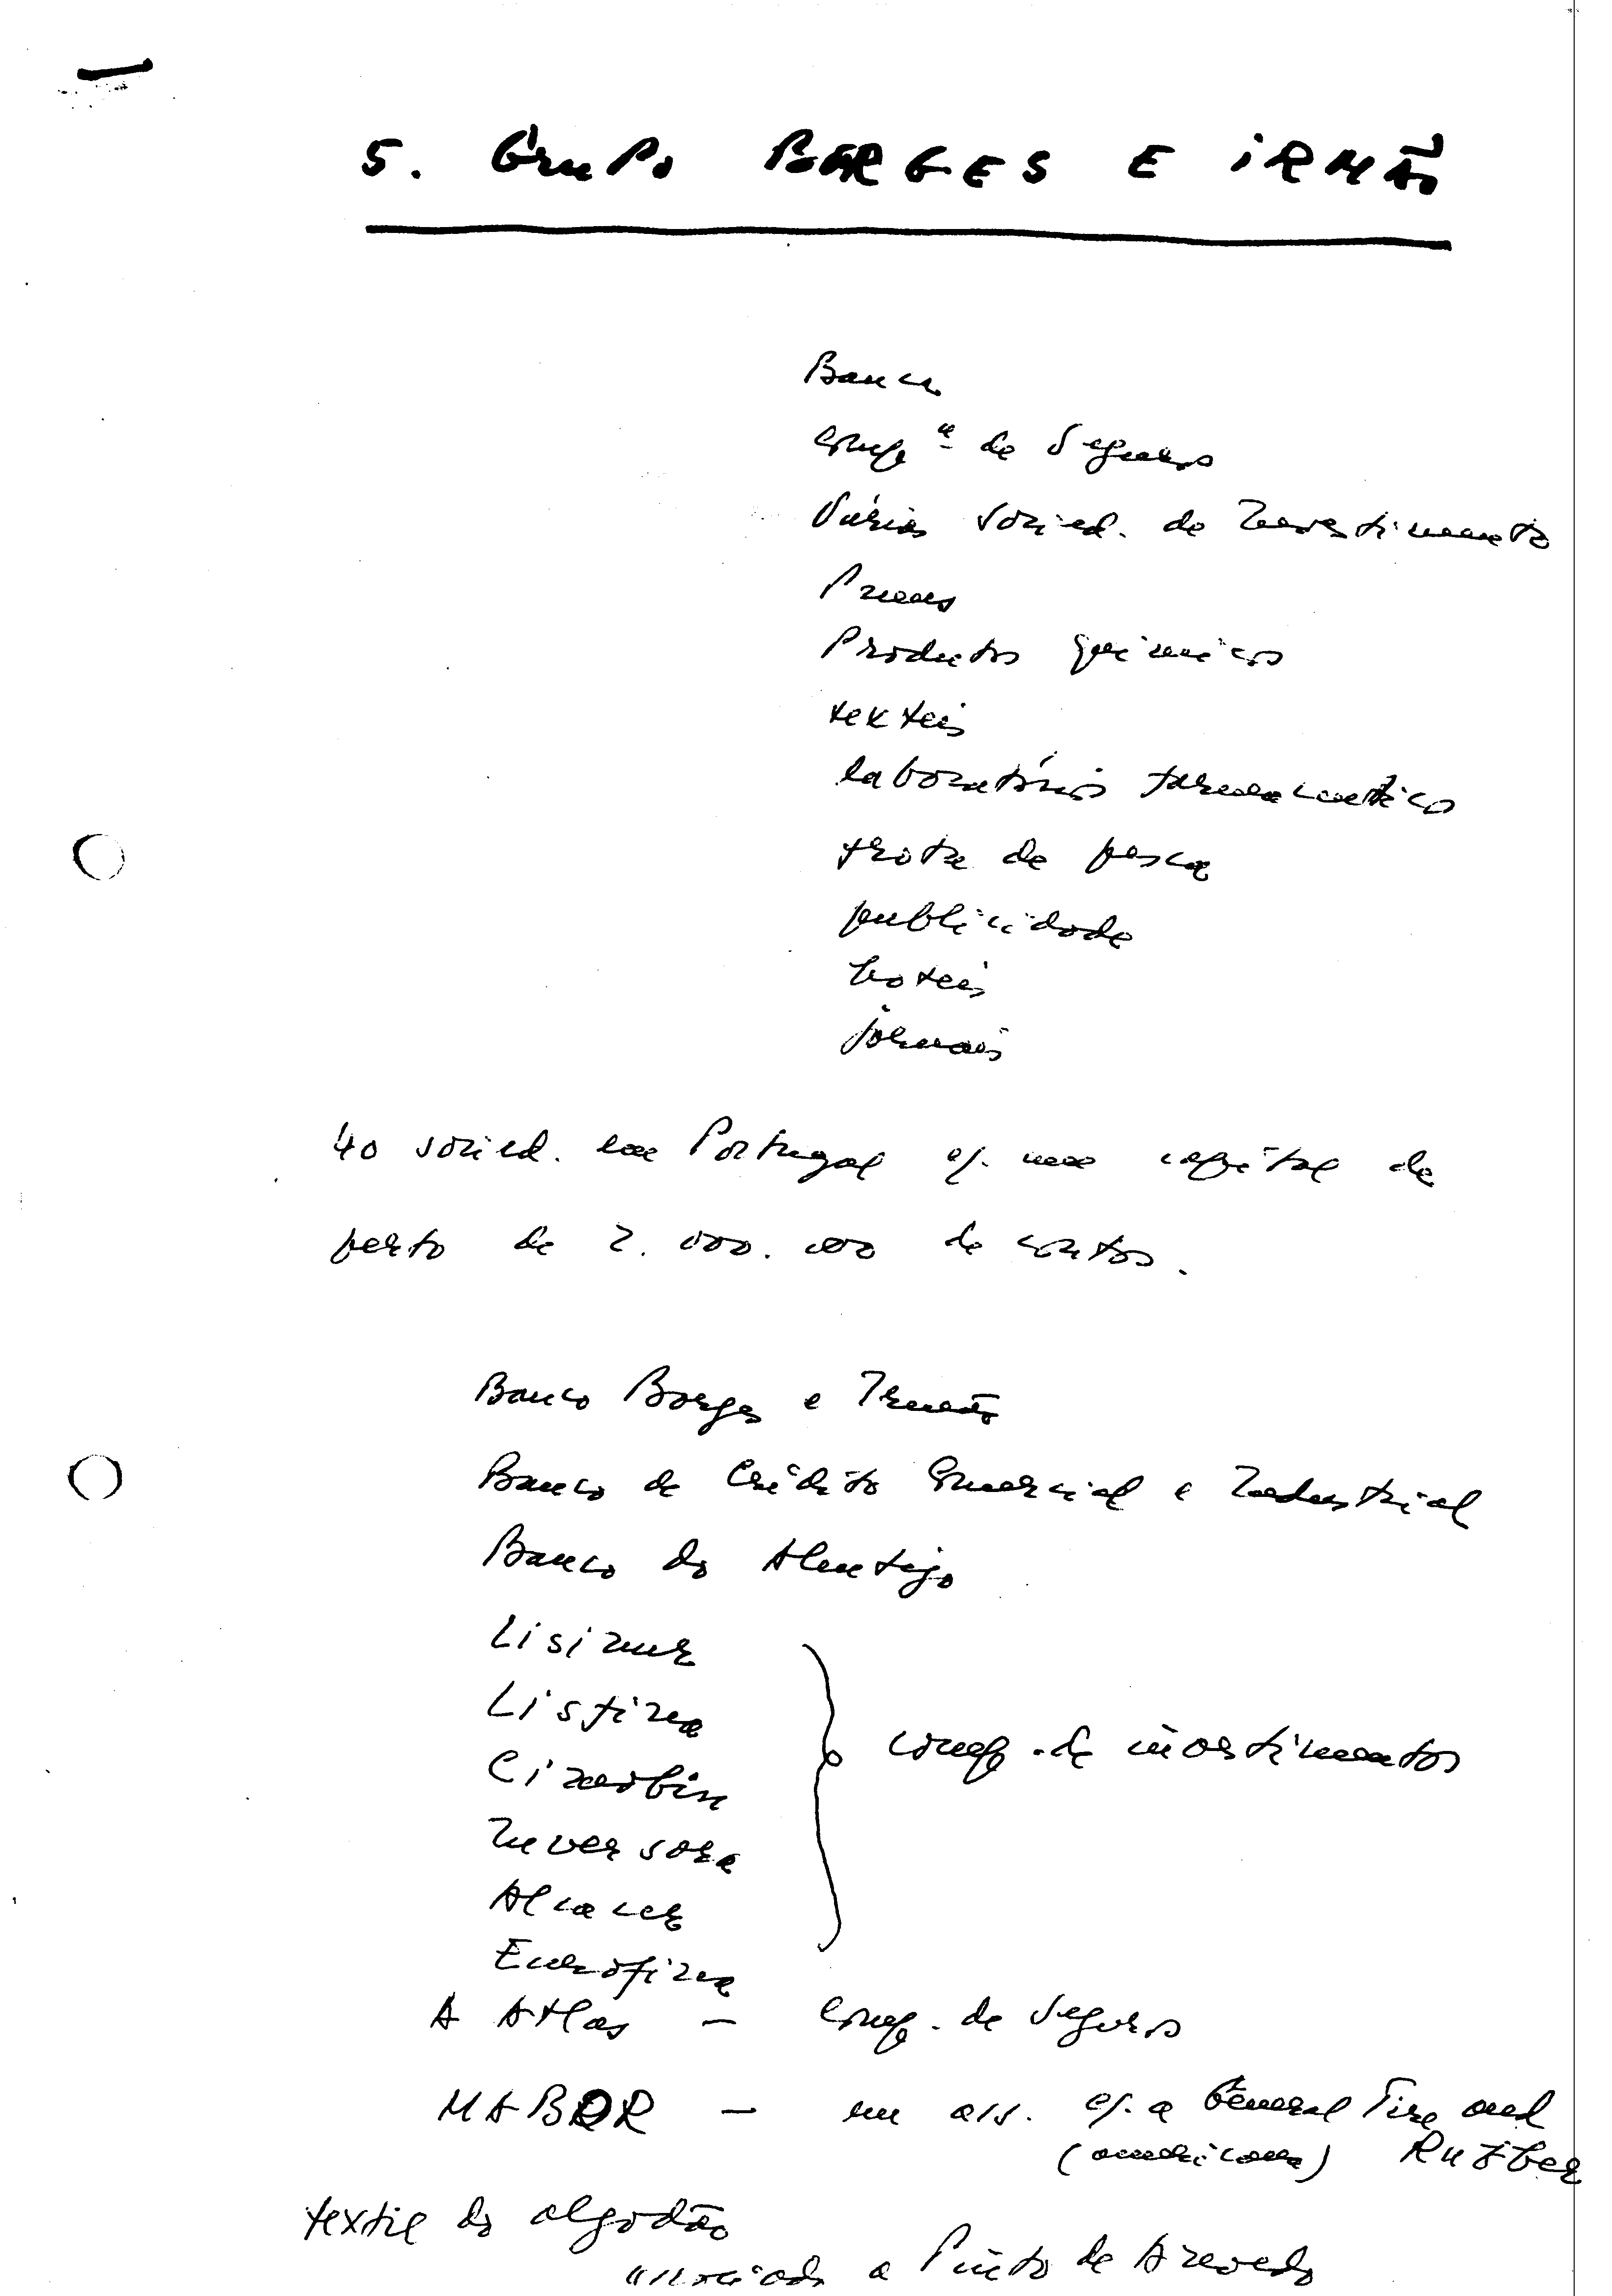 5. Grupo BORGES E IRMÃO
Banca
Comp.ª de Seguros
Várias Socied. de Investimento
Pneus
Produtos químicos
texteis
laboratórios farmaceuticos
frota de pesca
publicidade
hoteis
jornais
40 socied. em Portugal c/. um capital de
perto de 2.000.000 de contos.
Banco Borges e Irmão
Banco de Crédito Comercial e Industrial
Banco do Alentejo
Lisinur
Lisfina
Cinorbin
Inversora
Alcacer
Eurofina
comp. de investimentos
A Atlas — Comp. de Seguros
MABOR — em ass. c/. a General Tire and
(americana) Rubber
textil do algodão
associado a Pinto de Azevedo